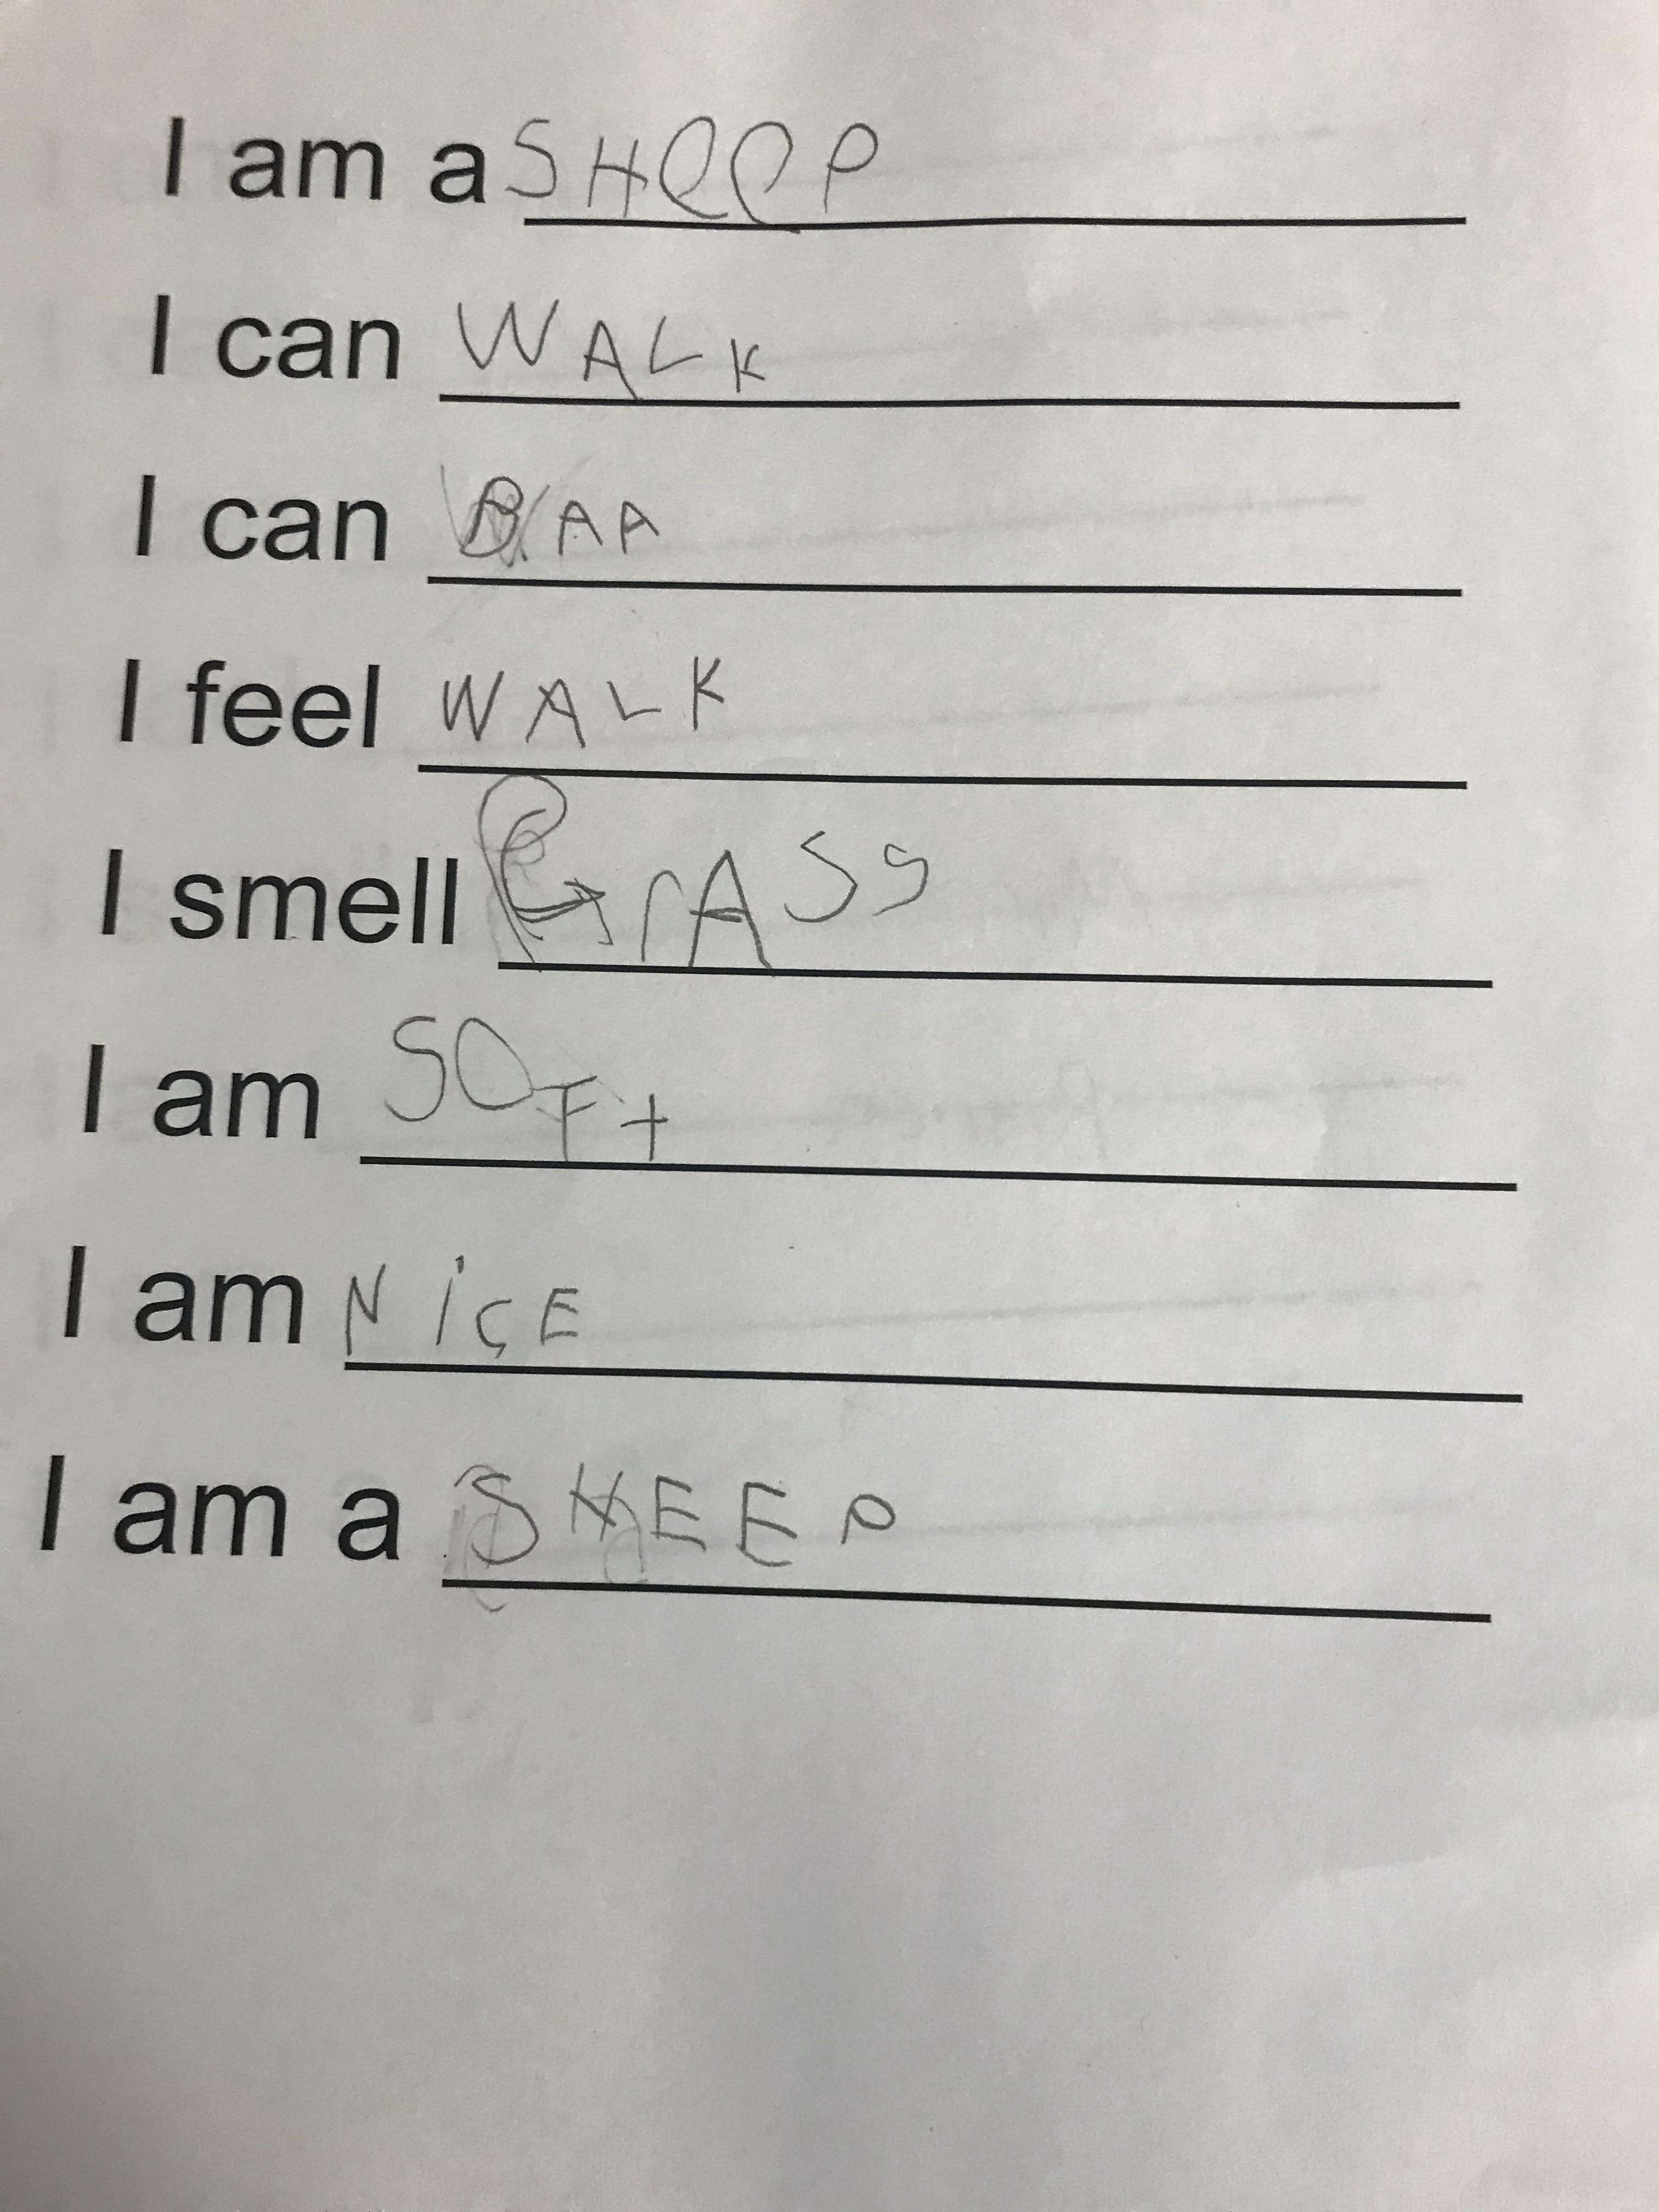 I am a SHeep
I can WALK
I can BAA
I feel WALK
I smell GrASS
I am SOFt
I am NiCE
I am a SHEEP